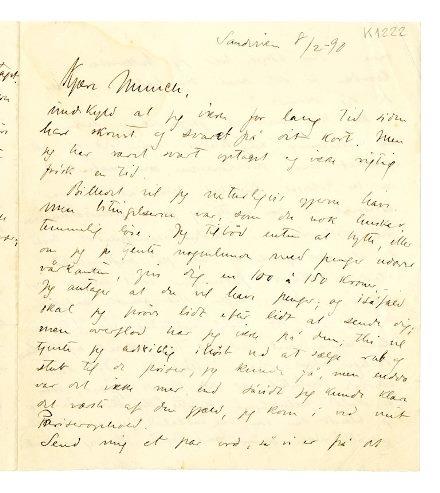 K1222
Sandviken 8/2-90
Kjære Munch,
undskyld at jeg ikke for lang tid siden
har skrevet og svaret på dit kort. Men
jeg har været svært optaget og ikke rigtig
frisk en tid.
Billedet vil jeg naturligvis gjerne have
men betingelserne var, som du nok husker,
temmelig løse. Jeg tilbød enten at bytte, eller
om jeg nogenlunde med penger udover
vårkanten, give dig en 100 à 150 kroner.
Jeg antager at du vil have penger, og isåfald
skal jeg prøve lidt efter lidt at sende dig;
men overflod har jeg ikke på dem, thi vel
tjente jeg adskillig ihøst ved at sælge rub og
stub til de priser, jeg kunde få, men endda
var det ikke mer end såvidt jeg kunde klare
det værste af den gjæld, jeg kom i ved mit
Pariserophold.
Send mig et par ord, så vi er på det